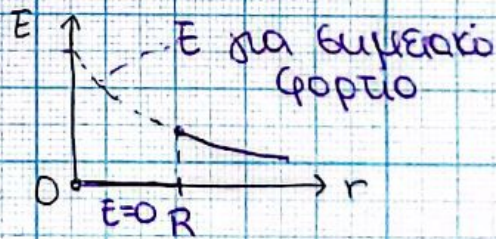 E
E για σημειακό
φορτίο
O
E=0 R
r